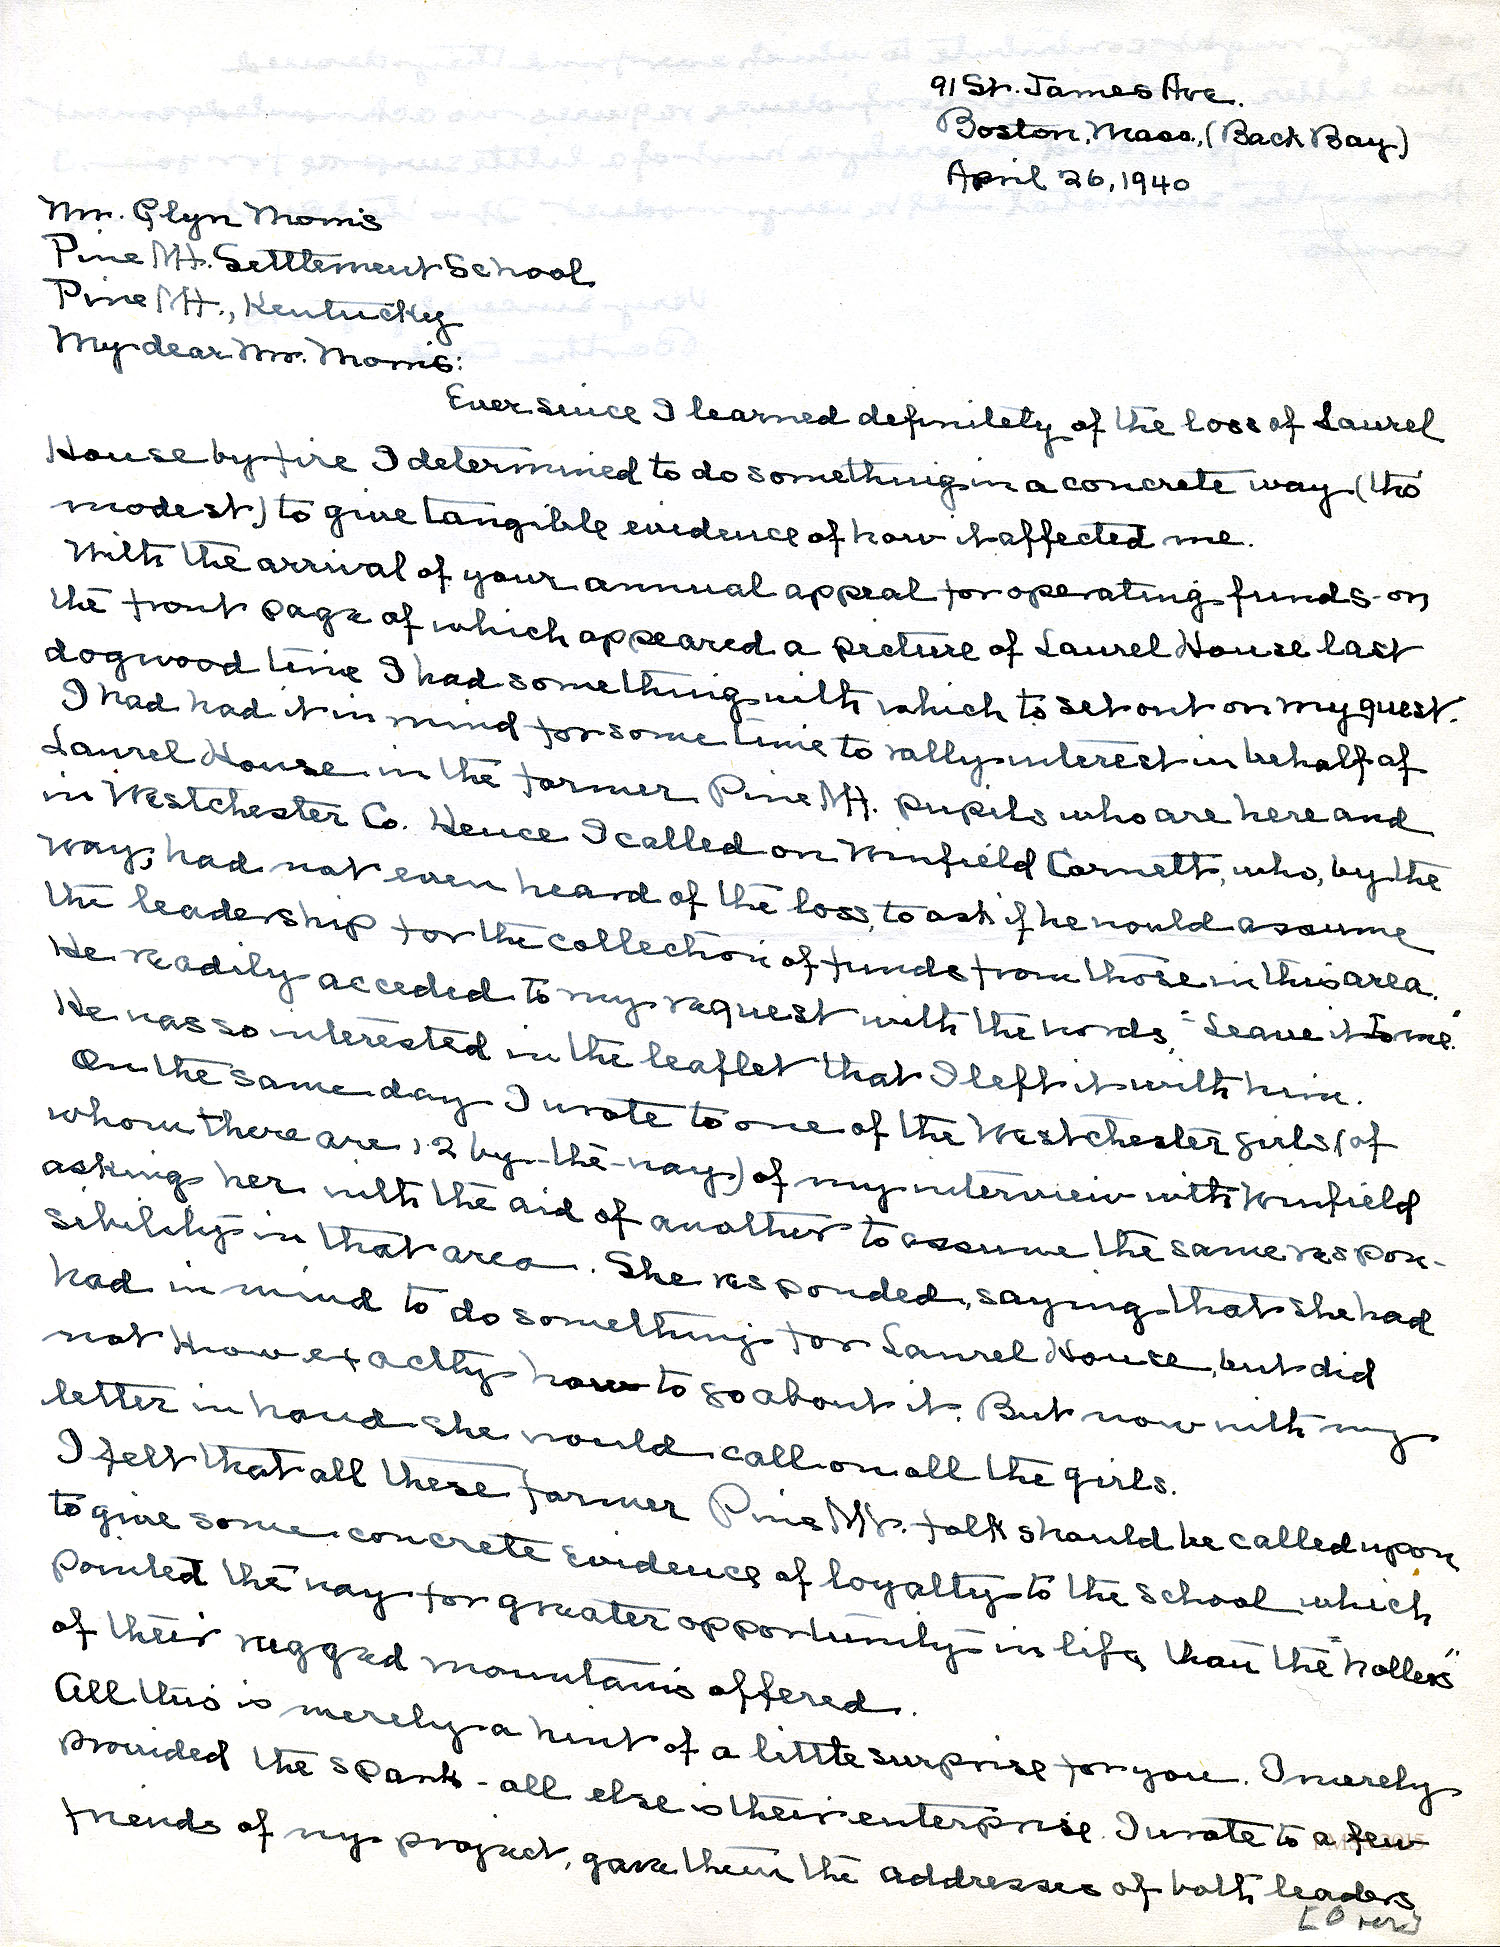 91 St. James Ave.
Boston, Mass., (Back Bay)
April 26, 1940
Mr. Glyn Morris
Pine Mt. Settlement School
Pine Mt., Kentucky
My dear Mr. Morris:
Ever since I learned definitely of the loss of Laurel
House by fire I determined to do something in a concrete way (tho
modest) to give tangible evidence of how it affected me.
With the arrival of your annual appeal for operating funds - on
the front page of which appeared a picture of Laurel House last
dogwood time I had something with which to set out on my quest.
I had had it in mind for some time to rally interest in behalf of
Laurel House in the former Pine Mt. pupils who are here and
in Westchester Co. Hence I called on Winfield Cornett, who, by the
way, had not even heard of the loss, to ask if he would assume
the leadership for the collection of funds from those in this area.
He readily acceded to my request with the words, "Leave it to me."
He was so interested in the leaflet that I left it with him.
On the same day I wrote to one of the Westchester girls (of
whom there are 12 by-the-way) of my interview with Winfield
asking her with the aid of another to assume the same respon-
sibility in that area. She responded, saying that she had
had in mind to do something for Laurel House, but did
not know exactly how to go about it. But now with my
letter in hand she would call on all the girls.
I felt that all these former Pine Mt. folk should be called upon
to give some concrete evidence of loyalty to the school which
pointed the way for greater opportunity in life than the "hollers"
of their rugged mountains offered.
All this is merely a hint of a little surprise for you. I merely
provided the spark - all else is their enterprise. I wrote to a few
friends of my project, gave them the addresses of both leaders
[Over]